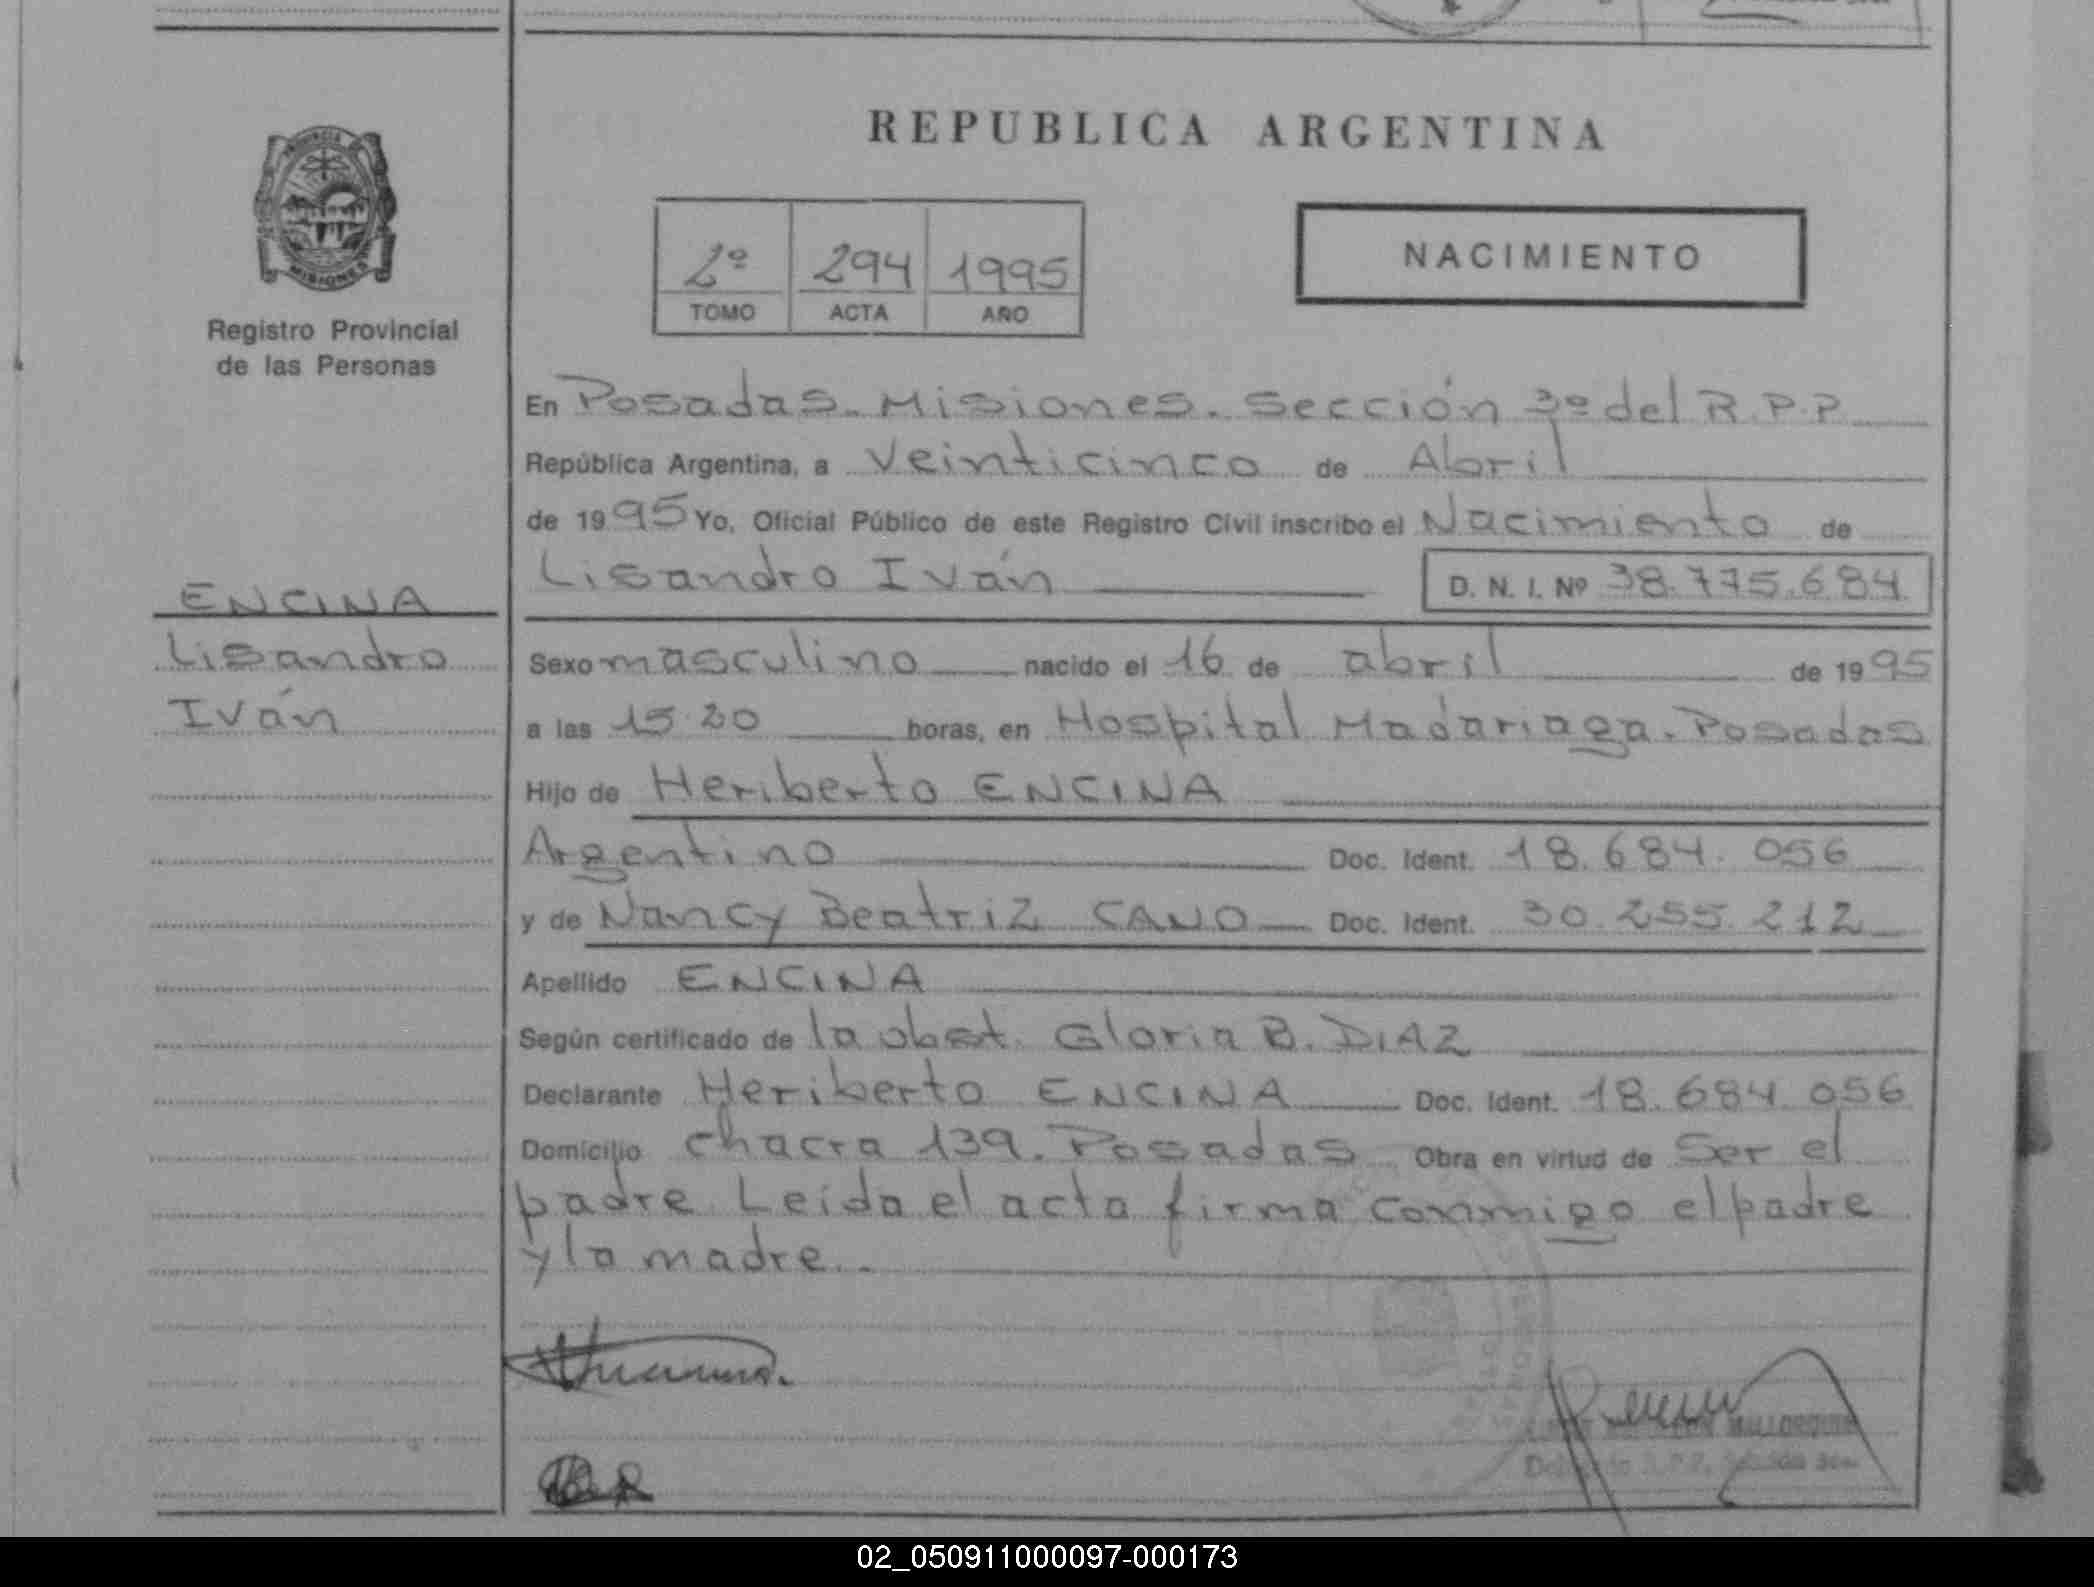 REPUBLICA ARGENTINA
PROVINCIA
MISIONES
Registro Provincial
de las Personas
2º 294 1995
TOMO ACTA AÑO
NACIMIENTO
En Posadas. Misiones. Sección 3º del R.P.P
República Argentina, a Veinticinco de Abril
de 1995 Yo, Oficial Público de este Registro Civil inscribo el Nacimiento de
Lisandro Iván D. N. I. Nº 38.775.684
ENCINA
Lisandro
Iván
Sexo masculino nacido el 16 de abril de 1995
a las 15.20 horas, en Hospital Madariaga. Posadas
Hijo de Heriberto ENCINA
Argentino Doc. Ident. 18.684.056
y de Nancy Beatriz CANO Doc. Ident. 30.255.212
Apellido ENCINA
Según certificado de la obst. Gloria B. DIAZ
Declarante Heriberto ENCINA Doc. Ident. 18.684.056
Domicilio Chacra 139. Posadas Obra en virtud de Ser el
padre. Leída el acta firma conmigo el padre
y la madre.
02_050911000097-000173